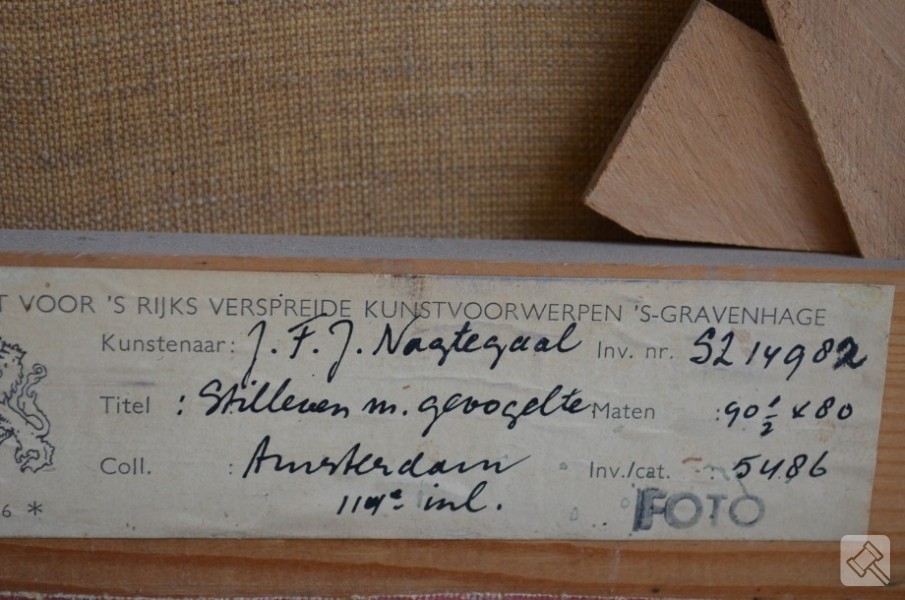 T VOOR 'S RIJKS VERSPREIDE KUNSTVOORWERPEN 'S-GRAVENHAGE
Kunstenaar: J. F. J. Nagtegaal Inv. nr. SZ 14982
Titel : Stilleven m. gevogelte Maten :90 1/2 x 80
Coll. : Amsterdam Inv./cat. : 5486
6 * 119e inl. FOTO